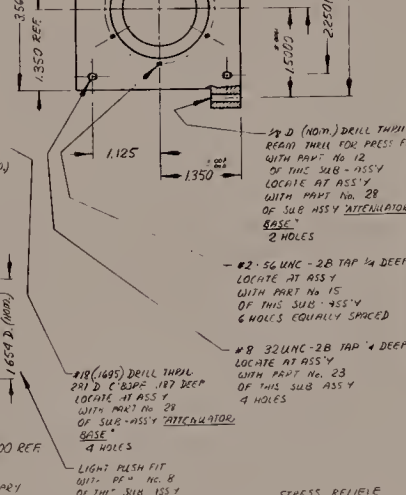 1.350 REF.
1.5000
2.250
1.125
1.350
D (NOM.) DRILL THRU
REAM THRU FOR PRESS F
WITH PART No 12
OF THIS SUB-ASS'Y
LOCATE AT ASS'Y
WITH PART No. 28
OF SUB ASS'Y "ATTENUATOR
BASE"
2 HOLES
#2-56 UNC-2B TAP 1/4 DEEP
LOCATE AT ASS'Y
WITH PART No 15
OF THIS SUB-ASS'Y
6 HOLES EQUALLY SPACED
#8 32UNC-2B TAP DEEP
LOCATE AT ASS'Y
WITH PART No. 23
OF THIS SUB ASS'Y
4 HOLES
1.654 D. (NOM.)
#18(.1695) DRILL THRU
.281 D C'BORE .187 DEEP
LOCATE AT ASS'Y
WITH PART No 28
OF SUB-ASS'Y "ATTENUATOR
BASE"
4 HOLES
00 REF.
LIGHT PUSH FIT
WITH No. 8
OF THIS SUB ASS'Y
STRESS RELIEVE